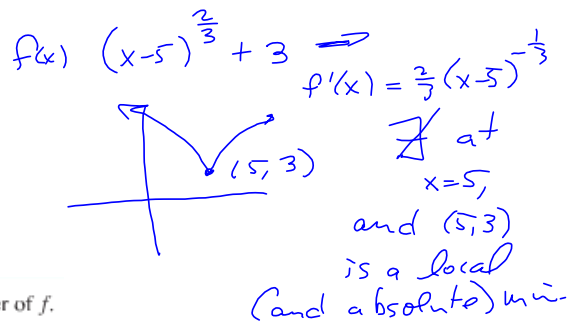 f(x) (x-5)^{2/3} + 3 ⇒
f'(x) = 2/3 (x-5)^{-1/3}
∄ at
x=5,
(5, 3)
and (5,3)
is a local
(and absolute) min.
r of f.